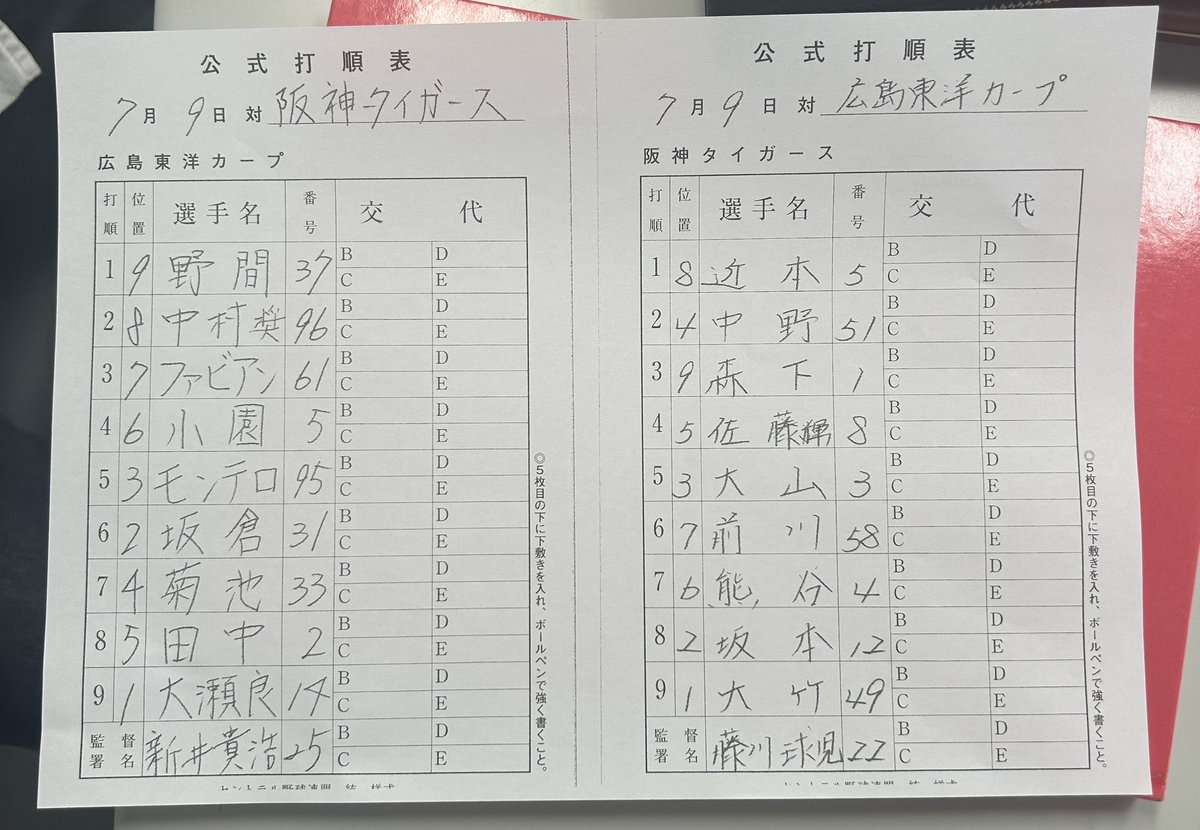 公式打順表
7月9日 対 阪神タイガース
広島東洋カープ
打順 位置 選手名 番号 交代
1 9 野間 37 B D C E
2 8 中村奨 96 B D C E
3 7 ファビアン 61 B D C E
4 6 小園 5 B D C E
5 3 モンテロ 95 B D C E
6 2 坂倉 31 B D C E
7 4 菊池 33 B D C E
8 5 田中 2 B D C E
9 1 大瀬良 14 B D C E
監督署名 新井貴浩 25 B D C E
◎5枚目の下に下敷きを入れ、ボールペンで強く書くこと。
公式打順表
7月9日 対 広島東洋カープ
阪神タイガース
打順 位置 選手名 番号 交代
1 8 近本 5 B D C E
2 4 中野 51 B D C E
3 9 森下 1 B D C E
4 5 佐藤輝 8 B D C E
5 3 大山 3 B D C E
6 7 前川 58 B D C E
7 6 熊谷 4 B D C E
8 2 坂本 12 B D C E
9 1 大竹 49 B D C E
監督署名 藤川球児 22 B D C E
◎5枚目の下に下敷きを入れ、ボールペンで強く書くこと。